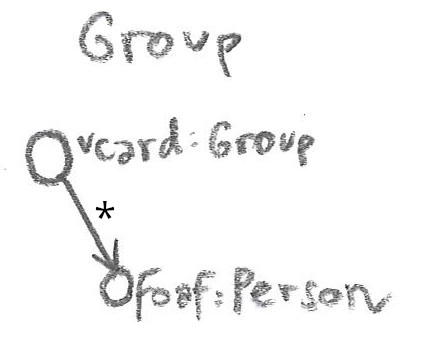 Group
vcard:Group
*
foaf:Person